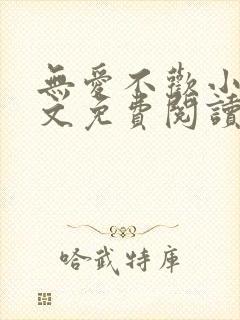 無愛不歡小
文免費閱讀
哈武特庫